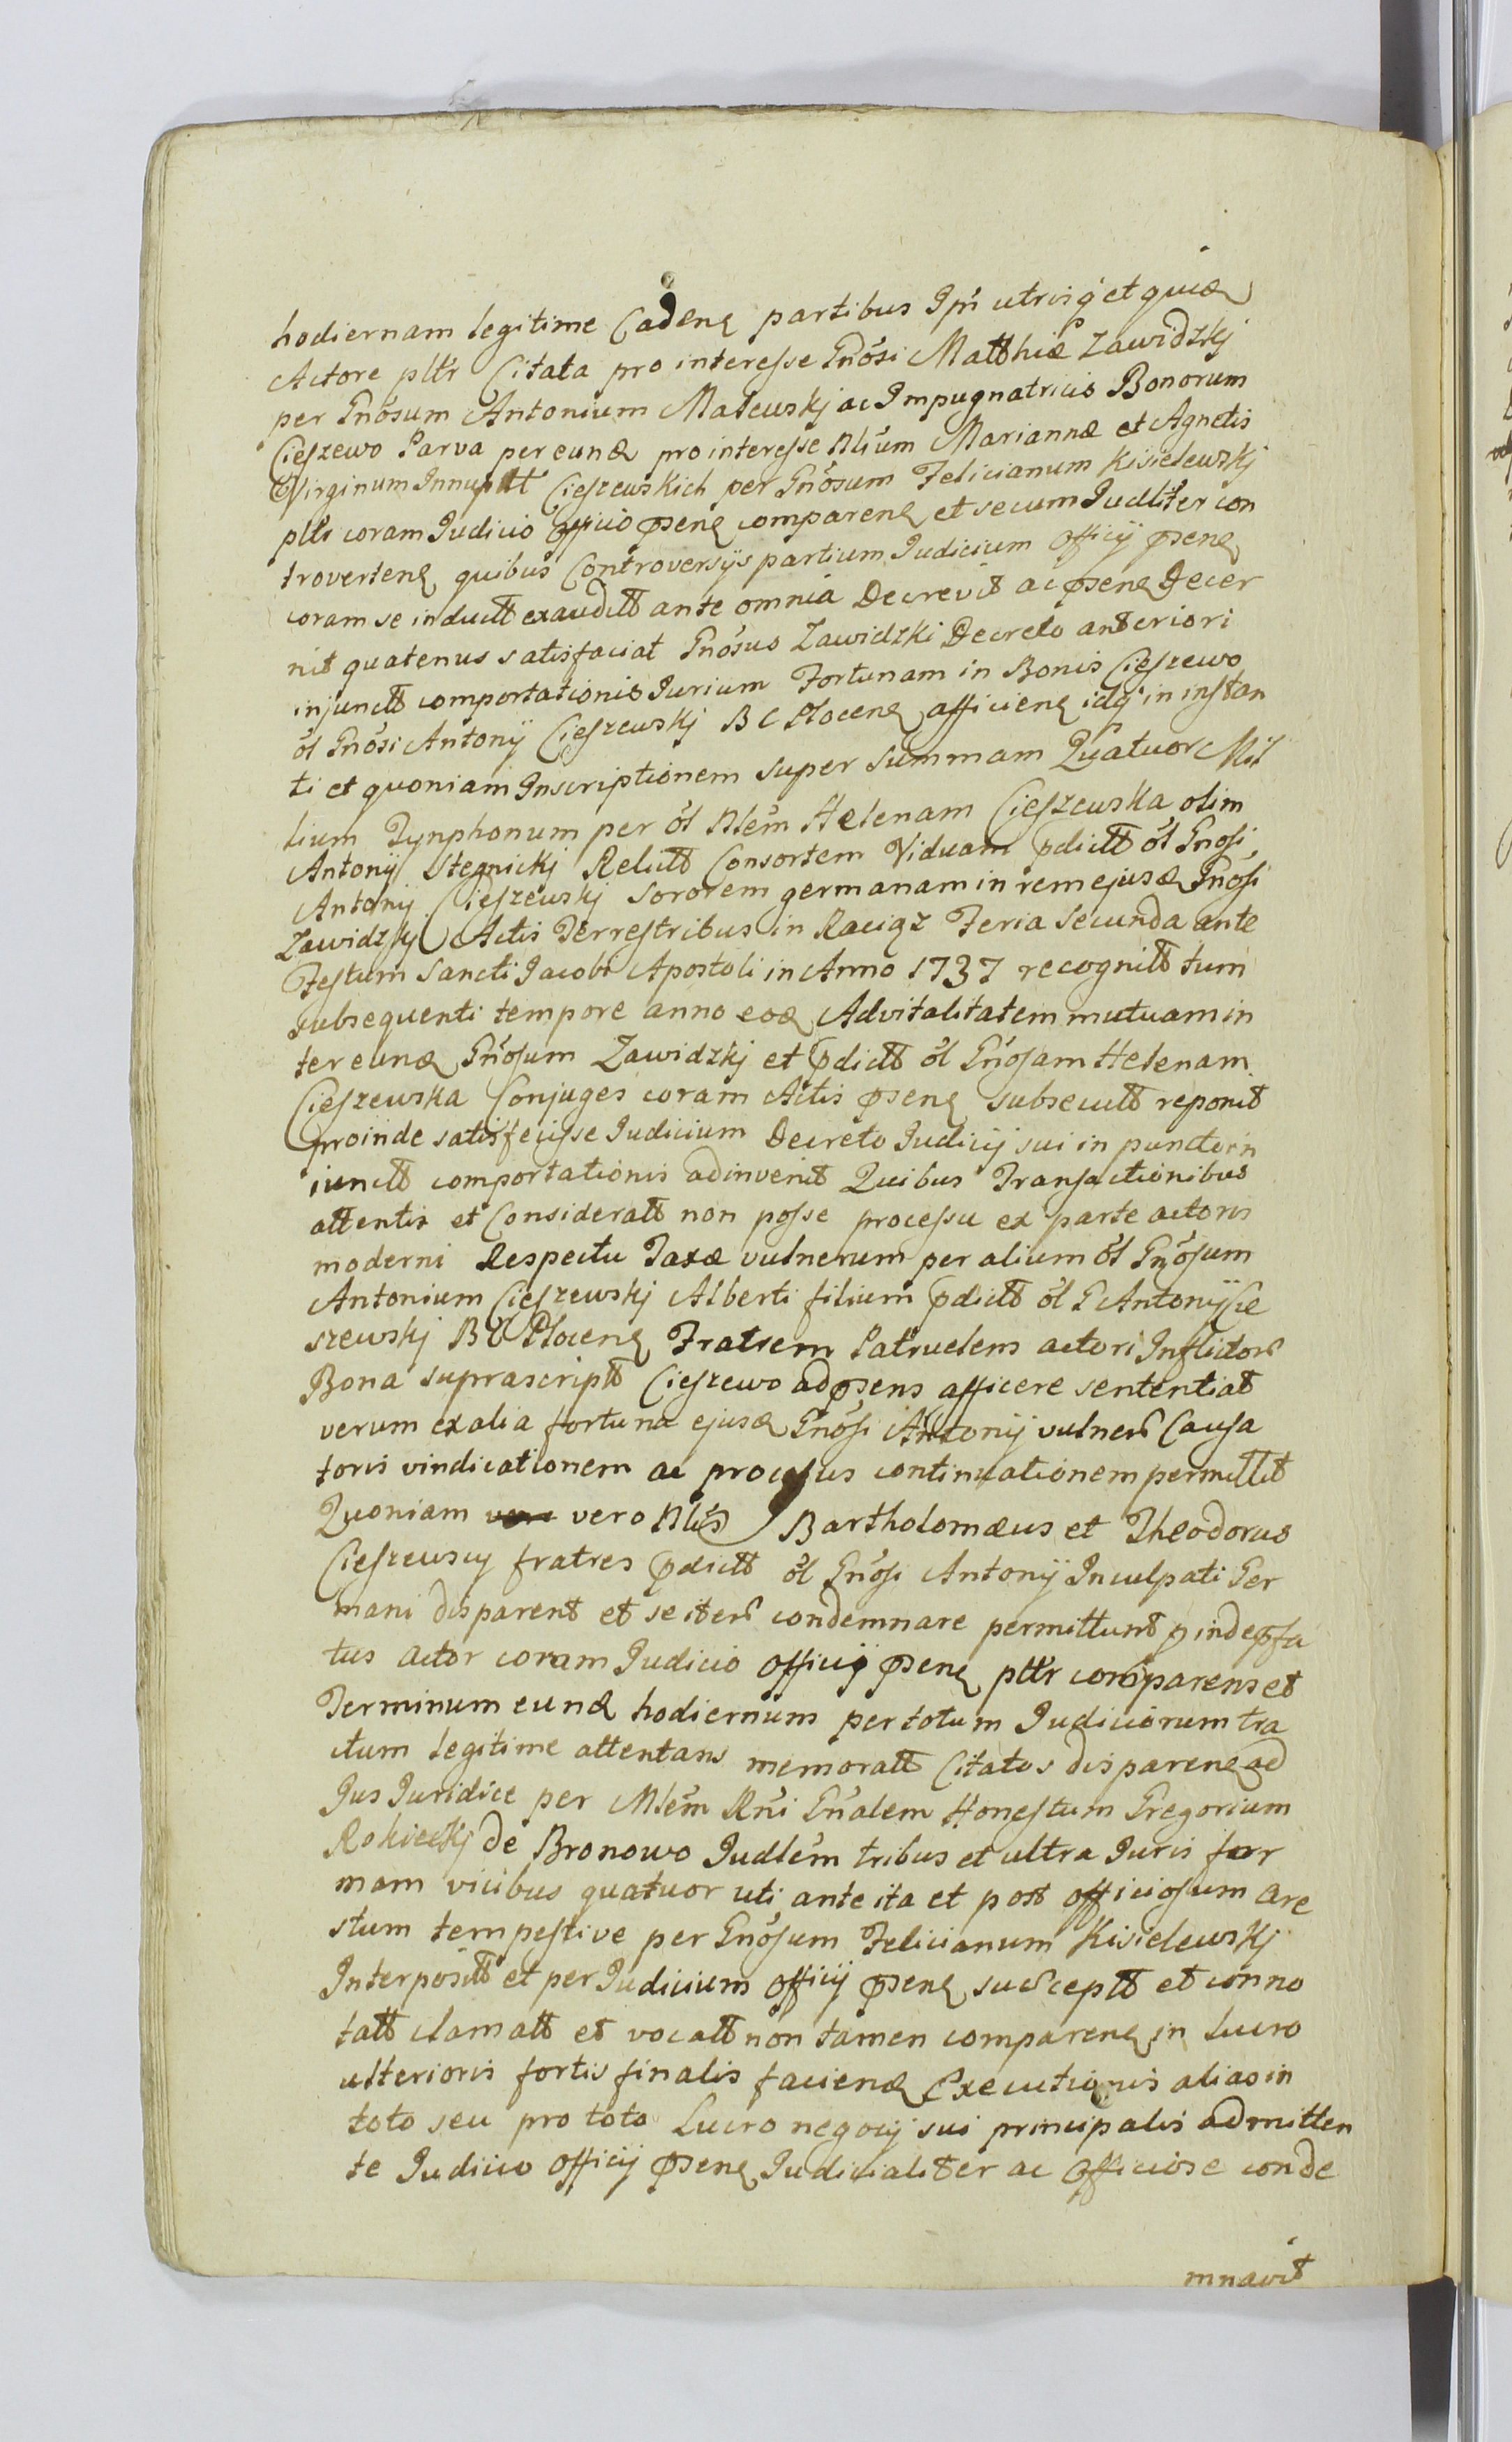 hodiernam legitime Cadenꝫ partibus Ipń utrisq́ et quiꝫ
Actore pltr̃ Citata pro interesse Gnósi Matthiæ Zawidzkj
per Gnósum Antonium Mateuskj ac Impugnatricis Bonorum
Cieszewo Parva per eundꝫ pro interesse Nliũm Mariannæ et Agnetis
Virginum Innuptt Cieszewskich per Gnósum Felicianum Kisielewskj
pltr coram Judicio Officio pñsenꝫ comparenꝫ et secum Judlĩter con
trovertenꝫ quibus Controversijs partium Judicium Officij pñsenꝫ
coram se induct̃t exaudit̃t ante omnia Decrevit ac pñsenꝫ Decer
nit quatenus satisfaciat Gnósus Zawidzki Decreto anteriori
injunct̃t comportationis Jurium Fortunam in Bonis Cieszewo
ól Gnósi Antonij Cieszewskj B C Plocenꝫ afficienꝫ idq́ in instan
ti et quoniam Inscriptionem super Summam Quatuor Mil
lium Tynphonum per ól Nlẽm Helenam Cieszewska olim
Antonij Stegnickj Relict̃t Consortem Viduam pdict̃t ól Gnosi
Antonij Cieszewskj sororem germanam in rem ejusdꝫ Gnósi
Zawidzkj Actis Terrestribus in Raciąz Feria Secunda ante
Festum Sancti Jacobi Apostoli in Anno 1737 recognit̃t tum
subsequenti tempore anno eodꝫ Advitalitatem mutuam in
ter eundꝫ Gnósum Zawidzkj et pdict̃t ól Gnósam Helenam
Cieszewska Conjuges coram Actis pñsenꝫ subsecut̃t reponit
proinde satisfecisse Judicium Decreto Judicij sui in puncto in
iunct̃t comportationis adinvenit Quibus Transactionibus
attentis et Considerat̃t non posse processu ex parte actoris
moderni Respectu Taxæ vulnerum per alium ól Gnósum
Antonium Cieszewskj Alberti filium pdict̃t ól G Antonij Cie
szewskj B C Plocenꝫ Fratrem Patruelem actori Inflictor̃
Bona suprascript̃t Cieszewo ad pñsens afficere sententiat
verum ex alia fortuna ejusdꝫ Gnósi Antonij vulner̃ Causa
toris vindicationem ac processus continuationem permittit
Quoniam vero Nlẽs Bartholomæus et Theodorus
Cieszewscy fratres pdict̃t ól Gnósi Antonij Inculpati Ger
mani disparent et se iter̃ condemnare permittunt pinde pfa
tus Actor coram Judicio Officij pñsenꝫ pltr̃ comparens et
Terminum eundꝫ hodiernum per totum Judiciorum tra
ctum legitime attentans memorat̃t Citatos disparenꝫ ad
Jus Juridice per Mlẽm Rñi Gñalem Honestum Gregorium
Rokickj de Bronowo Judlẽm tribus et ultra Juris for
mam vicibus quatuor uti ante ita et post officiosum are
stum tempestive per Gnósum Felicianum Kisielewskj
Interposit̃t et per Judicium Officij pñsenꝫ suscept̃t et conno
tat̃t clamat̃t et vocat̃t non tamen comparenꝫ in Lucro
ulterioris fortis finalis faciendꝫ Executionis alias in
toto seu pro toto Lucro negocij sui principalis admitten
te Judicio Officij pñsenꝫ Judicialiter ac Officiose conde
mnavit